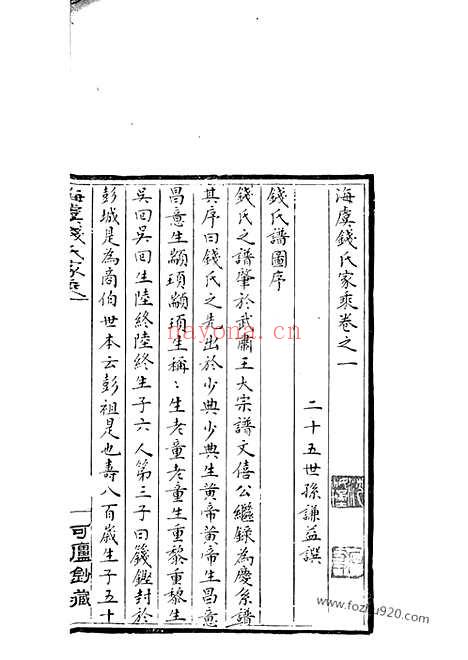 海虞錢氏家乘卷之一
二十五世孫謙益譔
錢氏譜圖序
錢氏之譜肇於武肅王大宗譜文僖公繼錄為慶系譜
其序曰錢氏之先出於少典少典生黃帝黃帝生昌意
昌意生顓頊顓頊生稱：生老童老童生重黎重黎生
吳回吳回生陸終陸終生子六人第三子曰籛鏗封於
彭城是為商伯世本云彭祖是也壽八百歲生子五十
海虞錢氏家乘
一
可廬鈔藏
nayona.cn
www.fozhu920.com